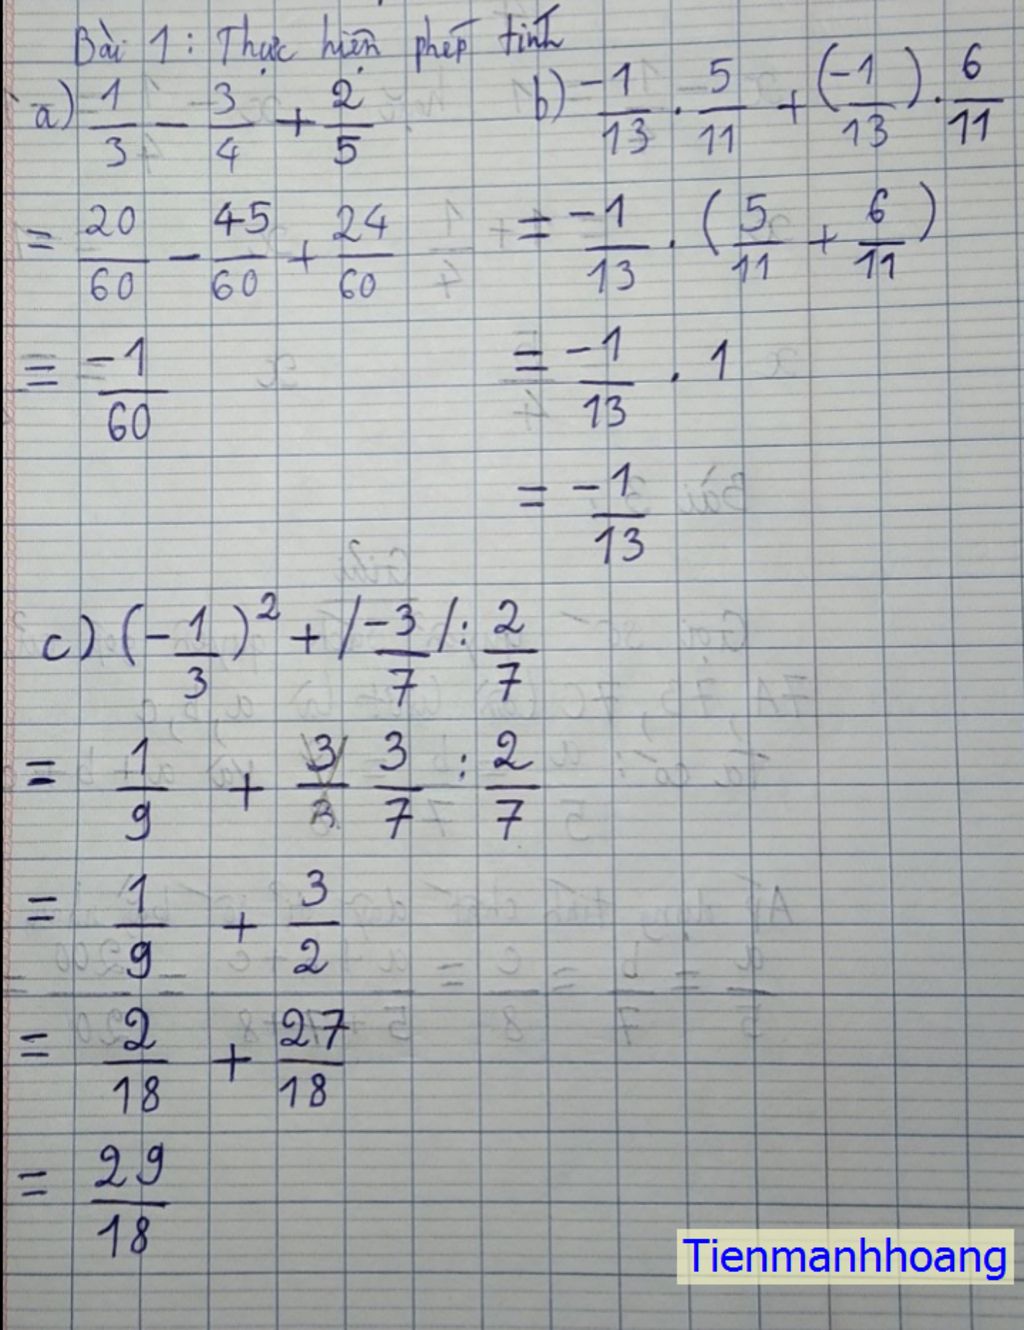 Bài 1: Thực hiện phép tính
a) 1/3 - 3/4 + 2/5
= 20/60 - 45/60 + 24/60
= -1/60
b) -1/13 . 5/11 + (-1/13) . 6/11
= -1/13 . (5/11 + 6/11)
= -1/13 . 1
= -1/13
c) (-1/3)² + /-3/7/ : 2/7
= 1/9 + 3/7 : 2/7
= 1/9 + 3/2
= 2/18 + 27/18
= 29/18
Tienmanhhoang